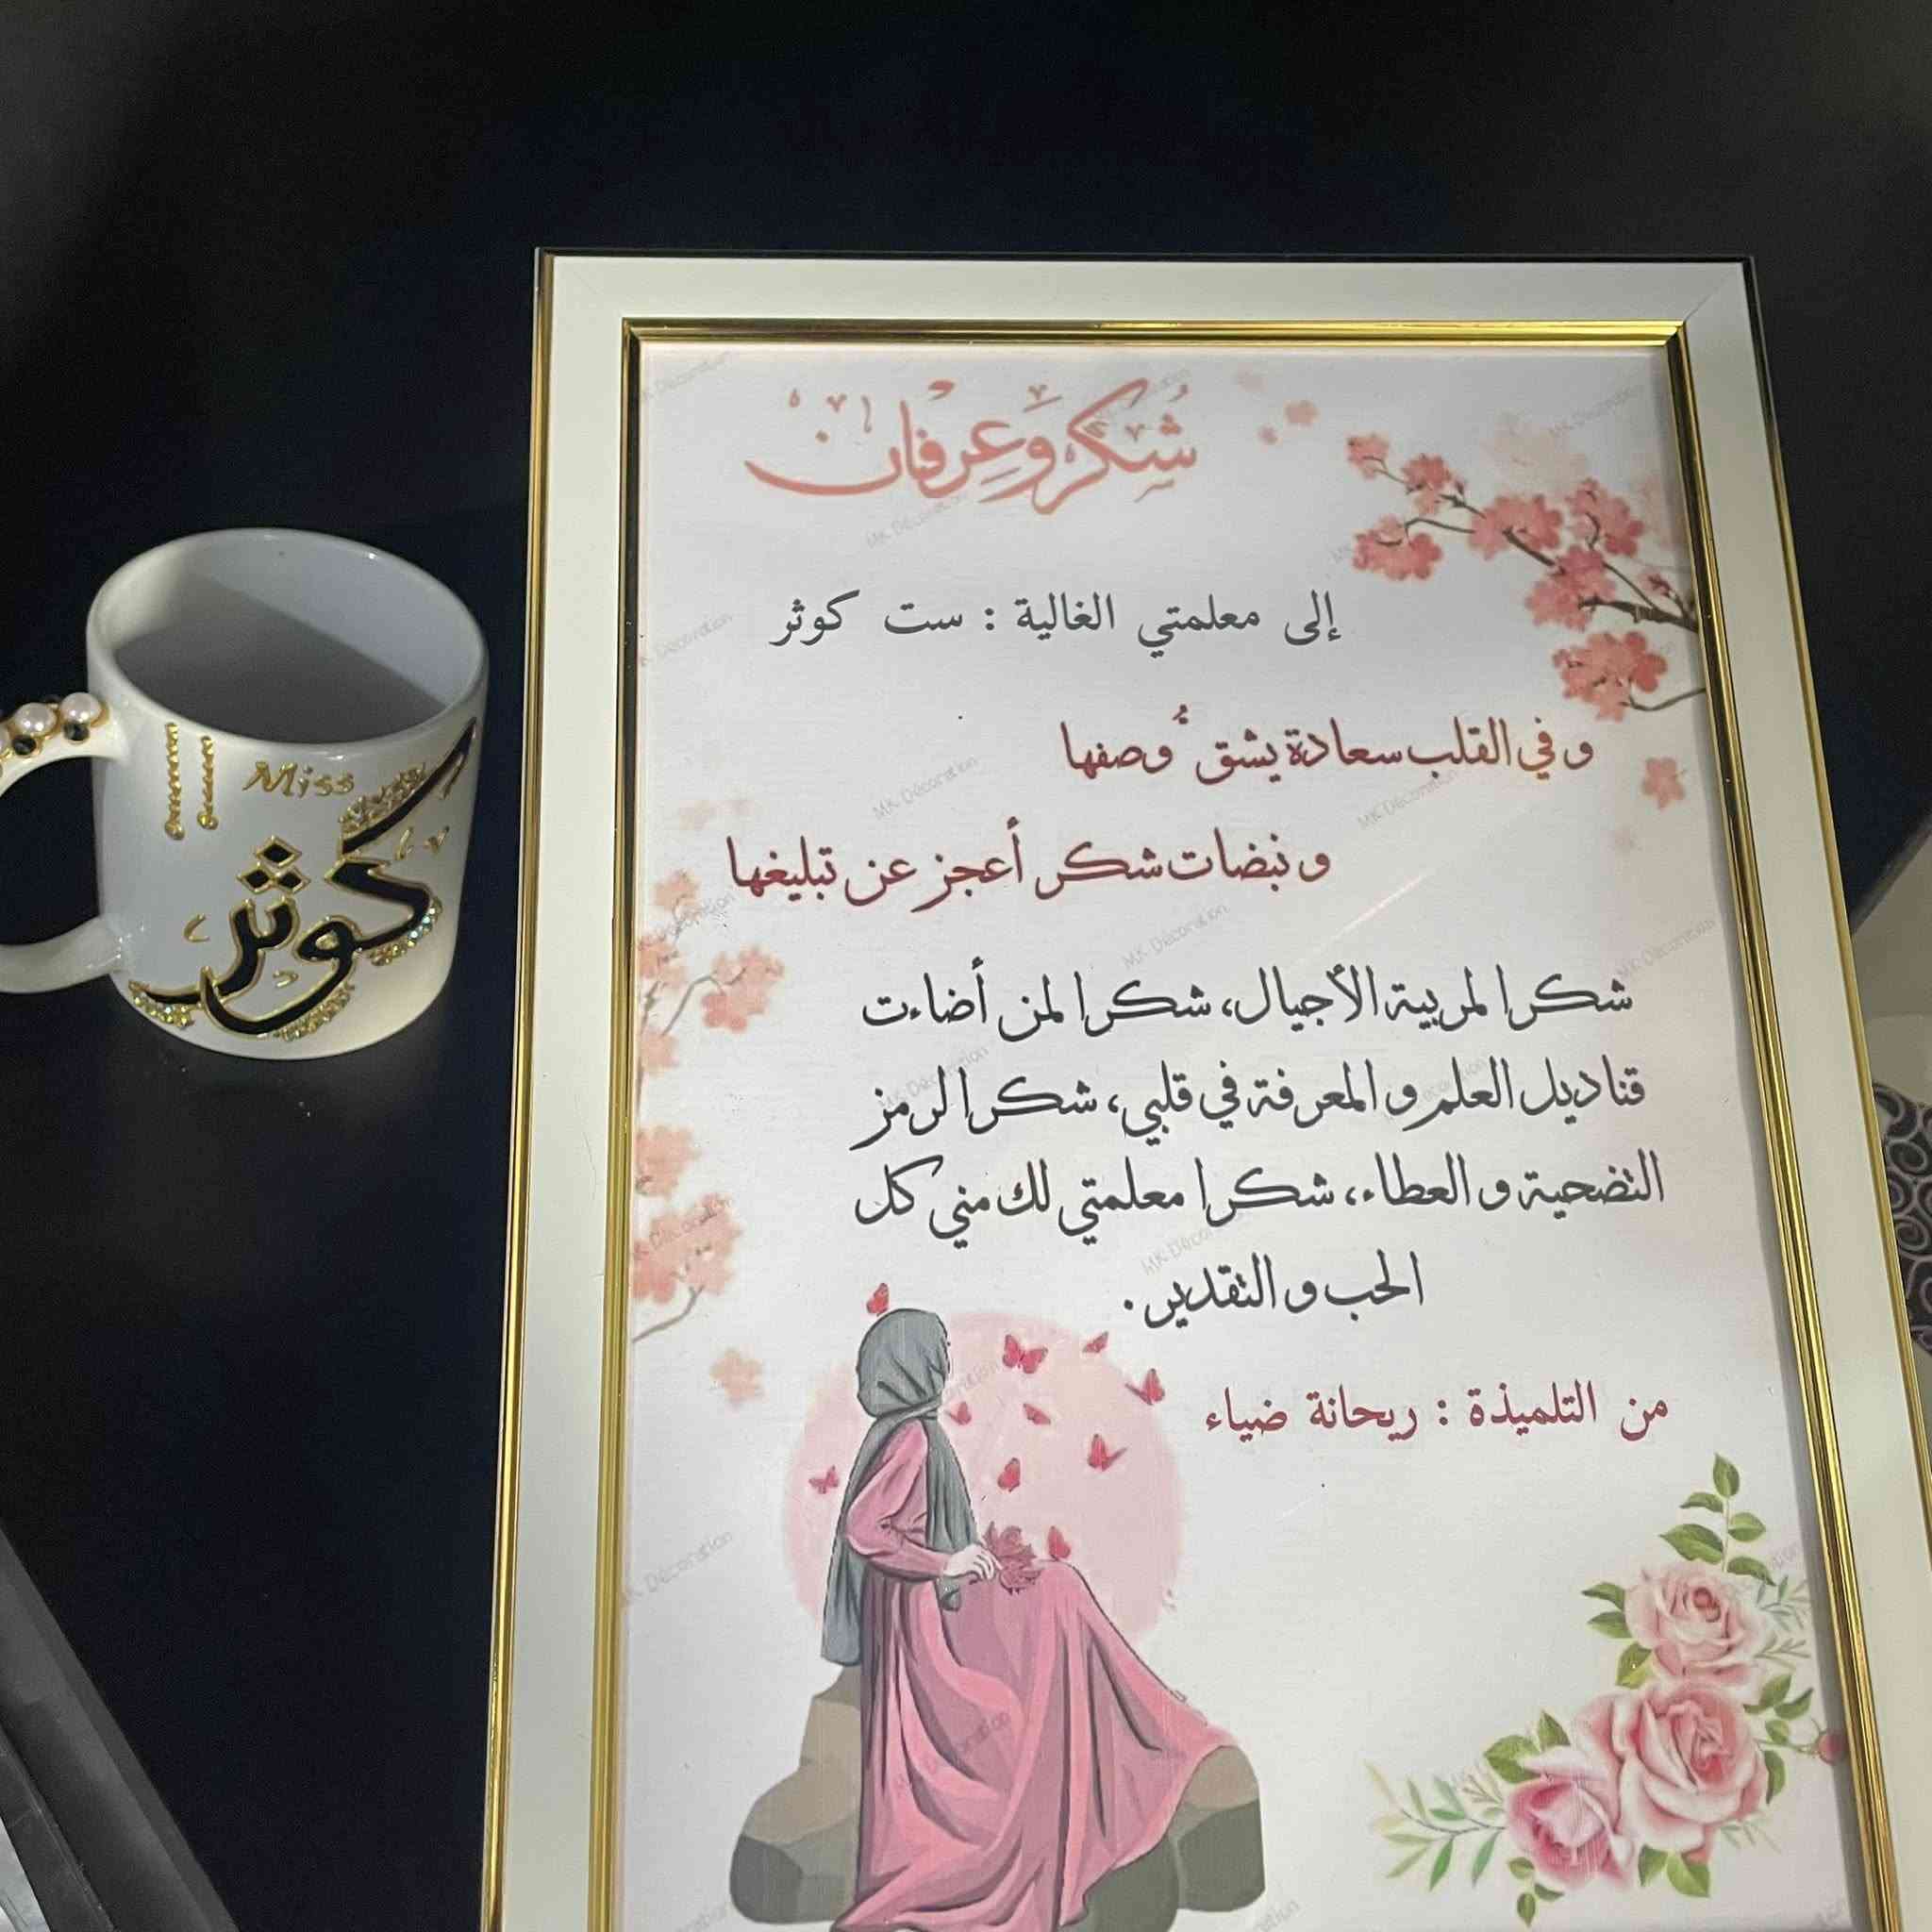 Miss
كوثر
شُكر وَعِرفان
إلى معلمتي الغالية : ست كوثر
و في القلب سعادة يشقُّ وصفها
و نبضات شكر أعجز عن تبليغها
شكرا لمربية الأجيال، شكرا لمن أضاءت
قناديل العلم و المعرفة في قلبي، شكرا لرمز
التضحية و العطاء، شكرا معلمتي لك مني كل
الحب و التقدير.
من التلميذة : ريحانة ضياء
MK Décoration